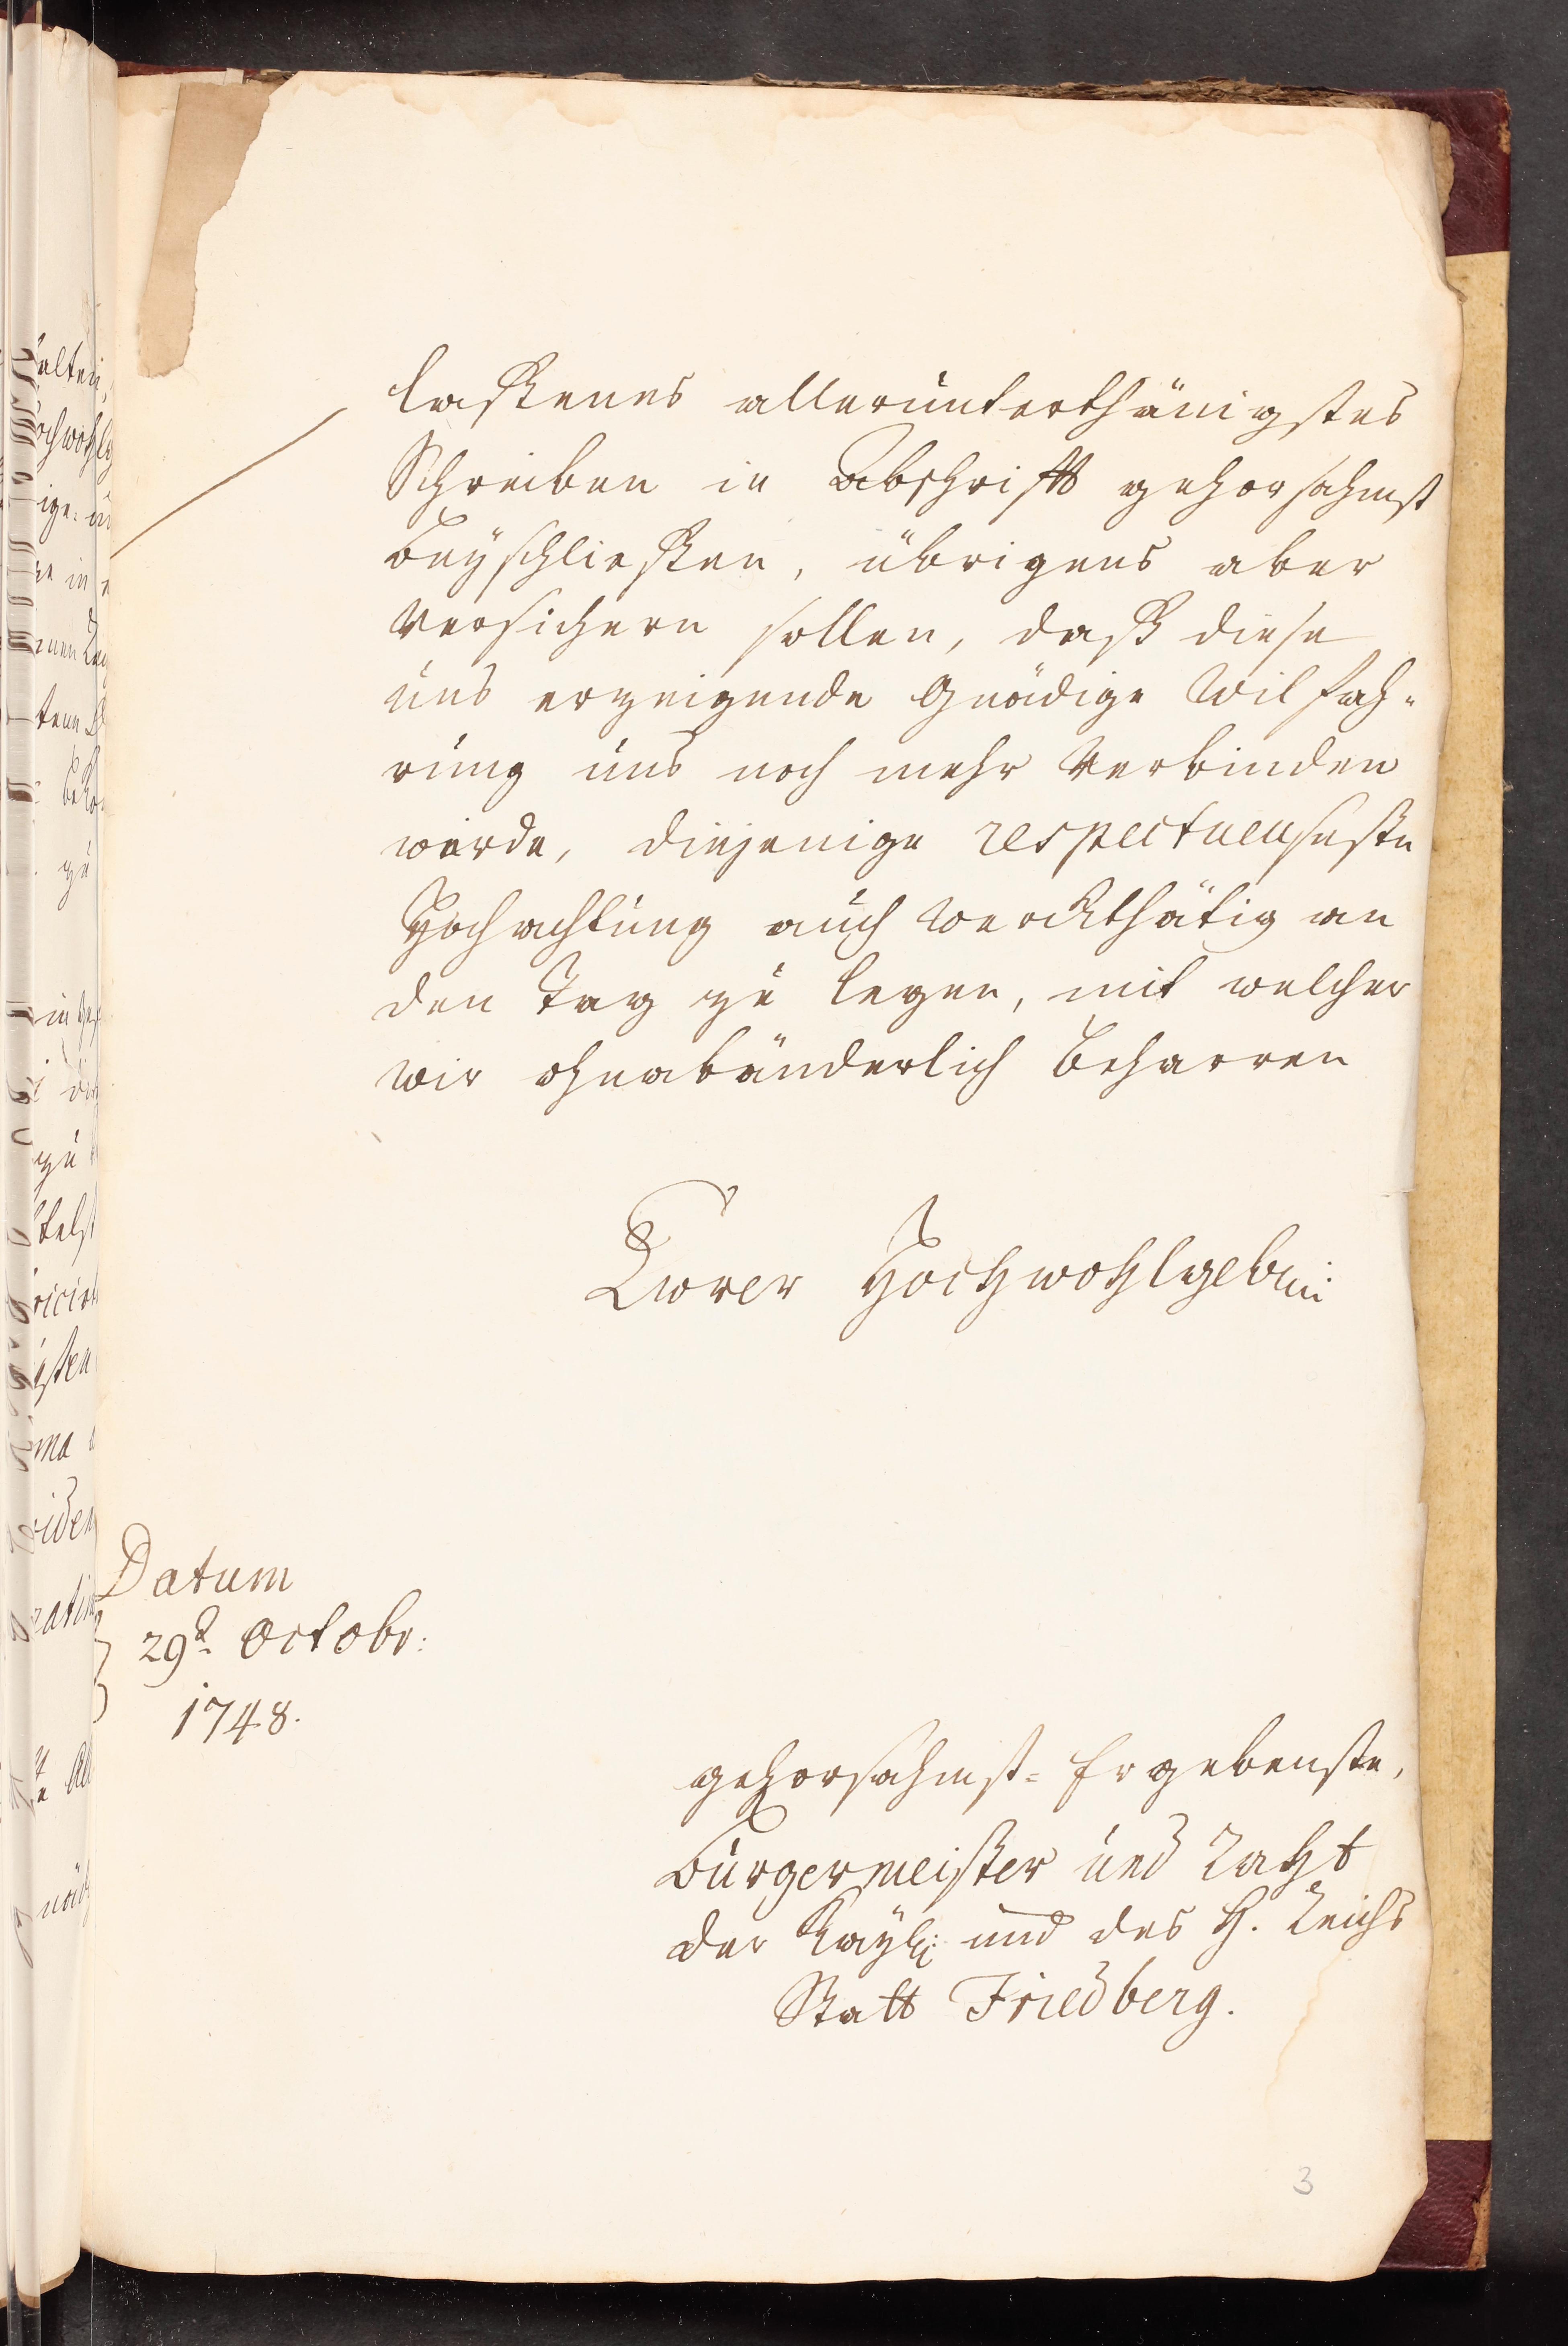 laßenes allerunterthänigstes
Schreiben in Abschrifft gehorsahmst
beyschließen, übrigens aber
versichern sollen, daß diese
uns erzeigende gnädige Wilfah-
rung uns noch mehr verbinden
werde, diejenige respectueuseste
Hochachtung auch werckthätig an
den Tag zu legen, mit welcher
wir ohnabänderlich beharren
Ewrer Hochwohlgeb:
Datum
29d. Octobr:
1748.
gehorsahmst-Ergebenste,
Bürgermeister und Raht
der Kayßl: und des H. Reichs
Statt Friedberg.
3